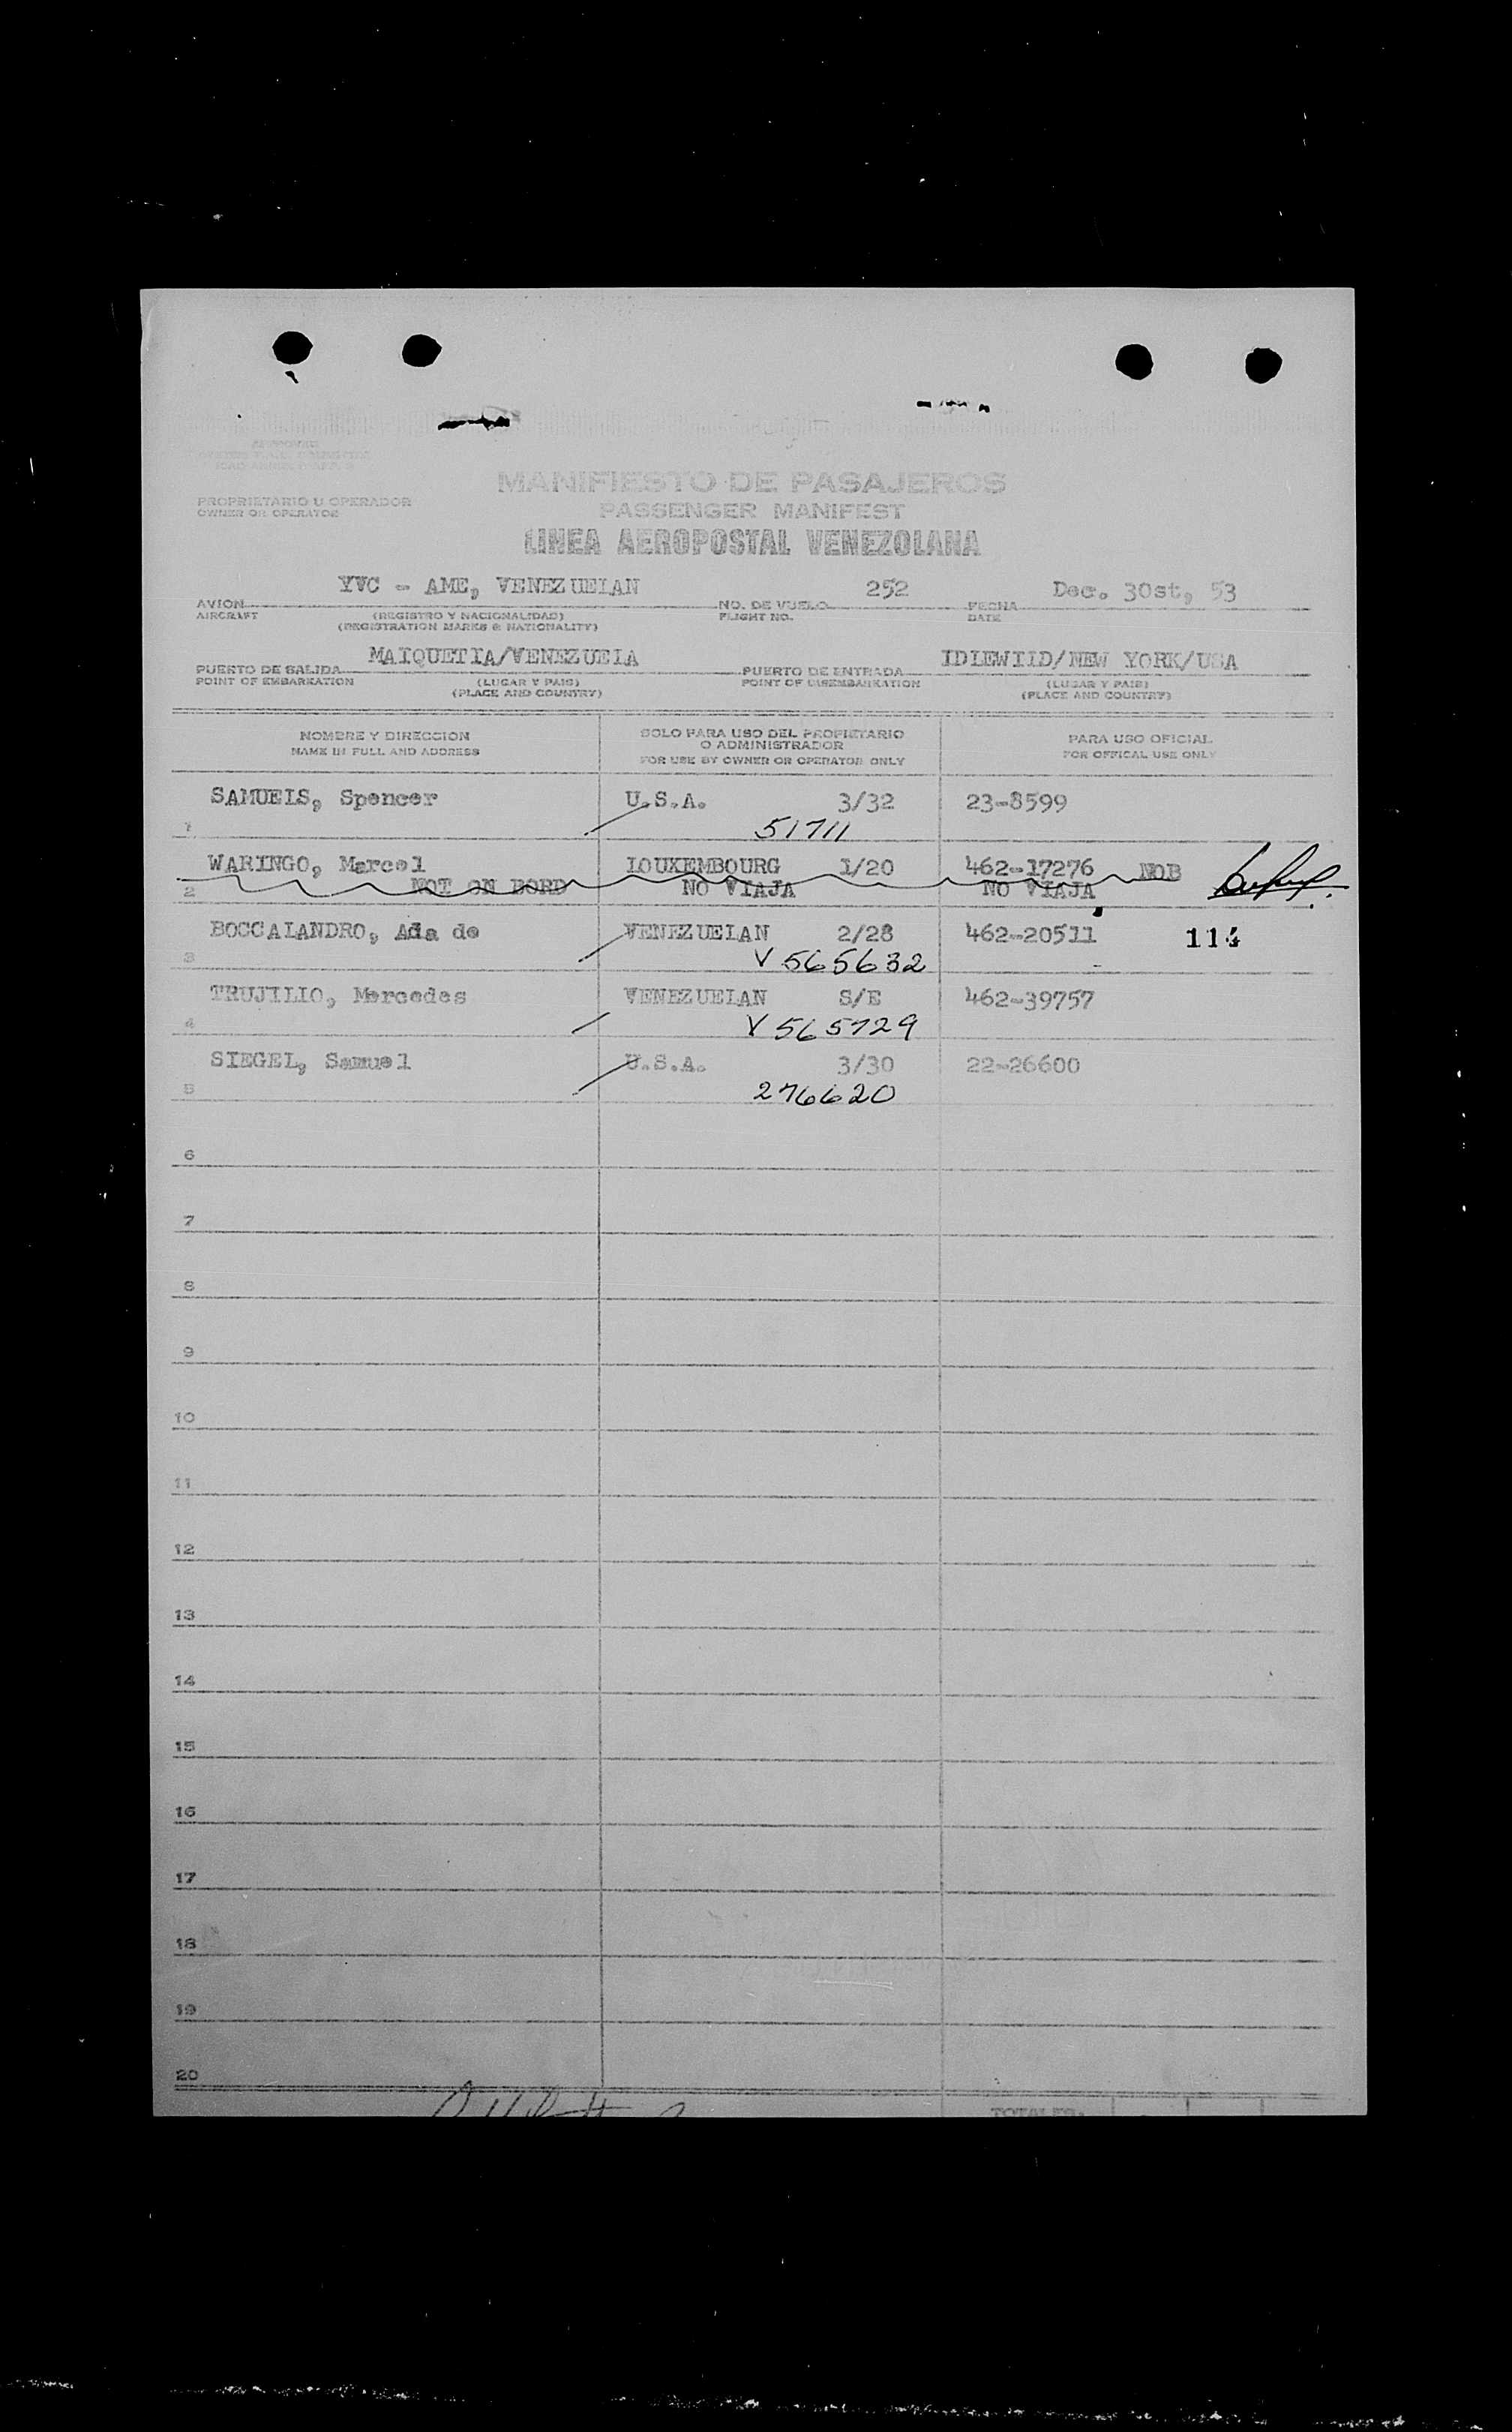 MANIFIESTO DE PASAJEROS
PROPRIETARIO U OPERADOR
OWNER OR OPERATOR
PASSENGER MANIFEST
LINEA AEROPOSTAL VENEZOLANA
YVC - AME, VENEZUELAN 252 Dec. 30st, 53
AVION NO. DE VUELO FECHA
AIRCRAFT (REGISTRO Y NACIONALIDAD) FLIGHT NO. DATE
(REGISTRATION MARKS & NATIONALITY)
MAIQUETIA/VENEZUELA IDLEWILD/NEW YORK/USA
PUERTO DE SALIDA PUERTO DE ENTRADA
POINT OF EMBARKATION (LUGAR Y PAIS) POINT OF DISEMBARKATION (LUGAR Y PAIS)
(PLACE AND COUNTRY) (PLACE AND COUNTRY)
NOMBRE Y DIRECCION SOLO PARA USO DEL PROPIETARIO PARA USO OFICIAL
NAME IN FULL AND ADDRESS O ADMINISTRADOR FOR OFFICAL USE ONLY
FOR USE BY OWNER OR OPERATOR ONLY
SAMUELS, Spencer U.S.A. 3/32 23-8599
1 51711
WARINGO, Marcel LOUXEMBOURG 1/20 462-17276 NOB
2 NOT ON BORD NO VIAJA NO VIAJA
BOCCALANDRO, Ada de VENEZUELAN 2/28 462-20511 114
3 V 565632
TRUJILLO, Mercedes VENEZUELAN S/E 462-39757
4 V 565729
SIEGEL, Samuel U.S.A. 3/30 22-26600
5 276620
6
7
8
9
10
11
12
13
14
15
16
17
18
19
20
TOTALES: